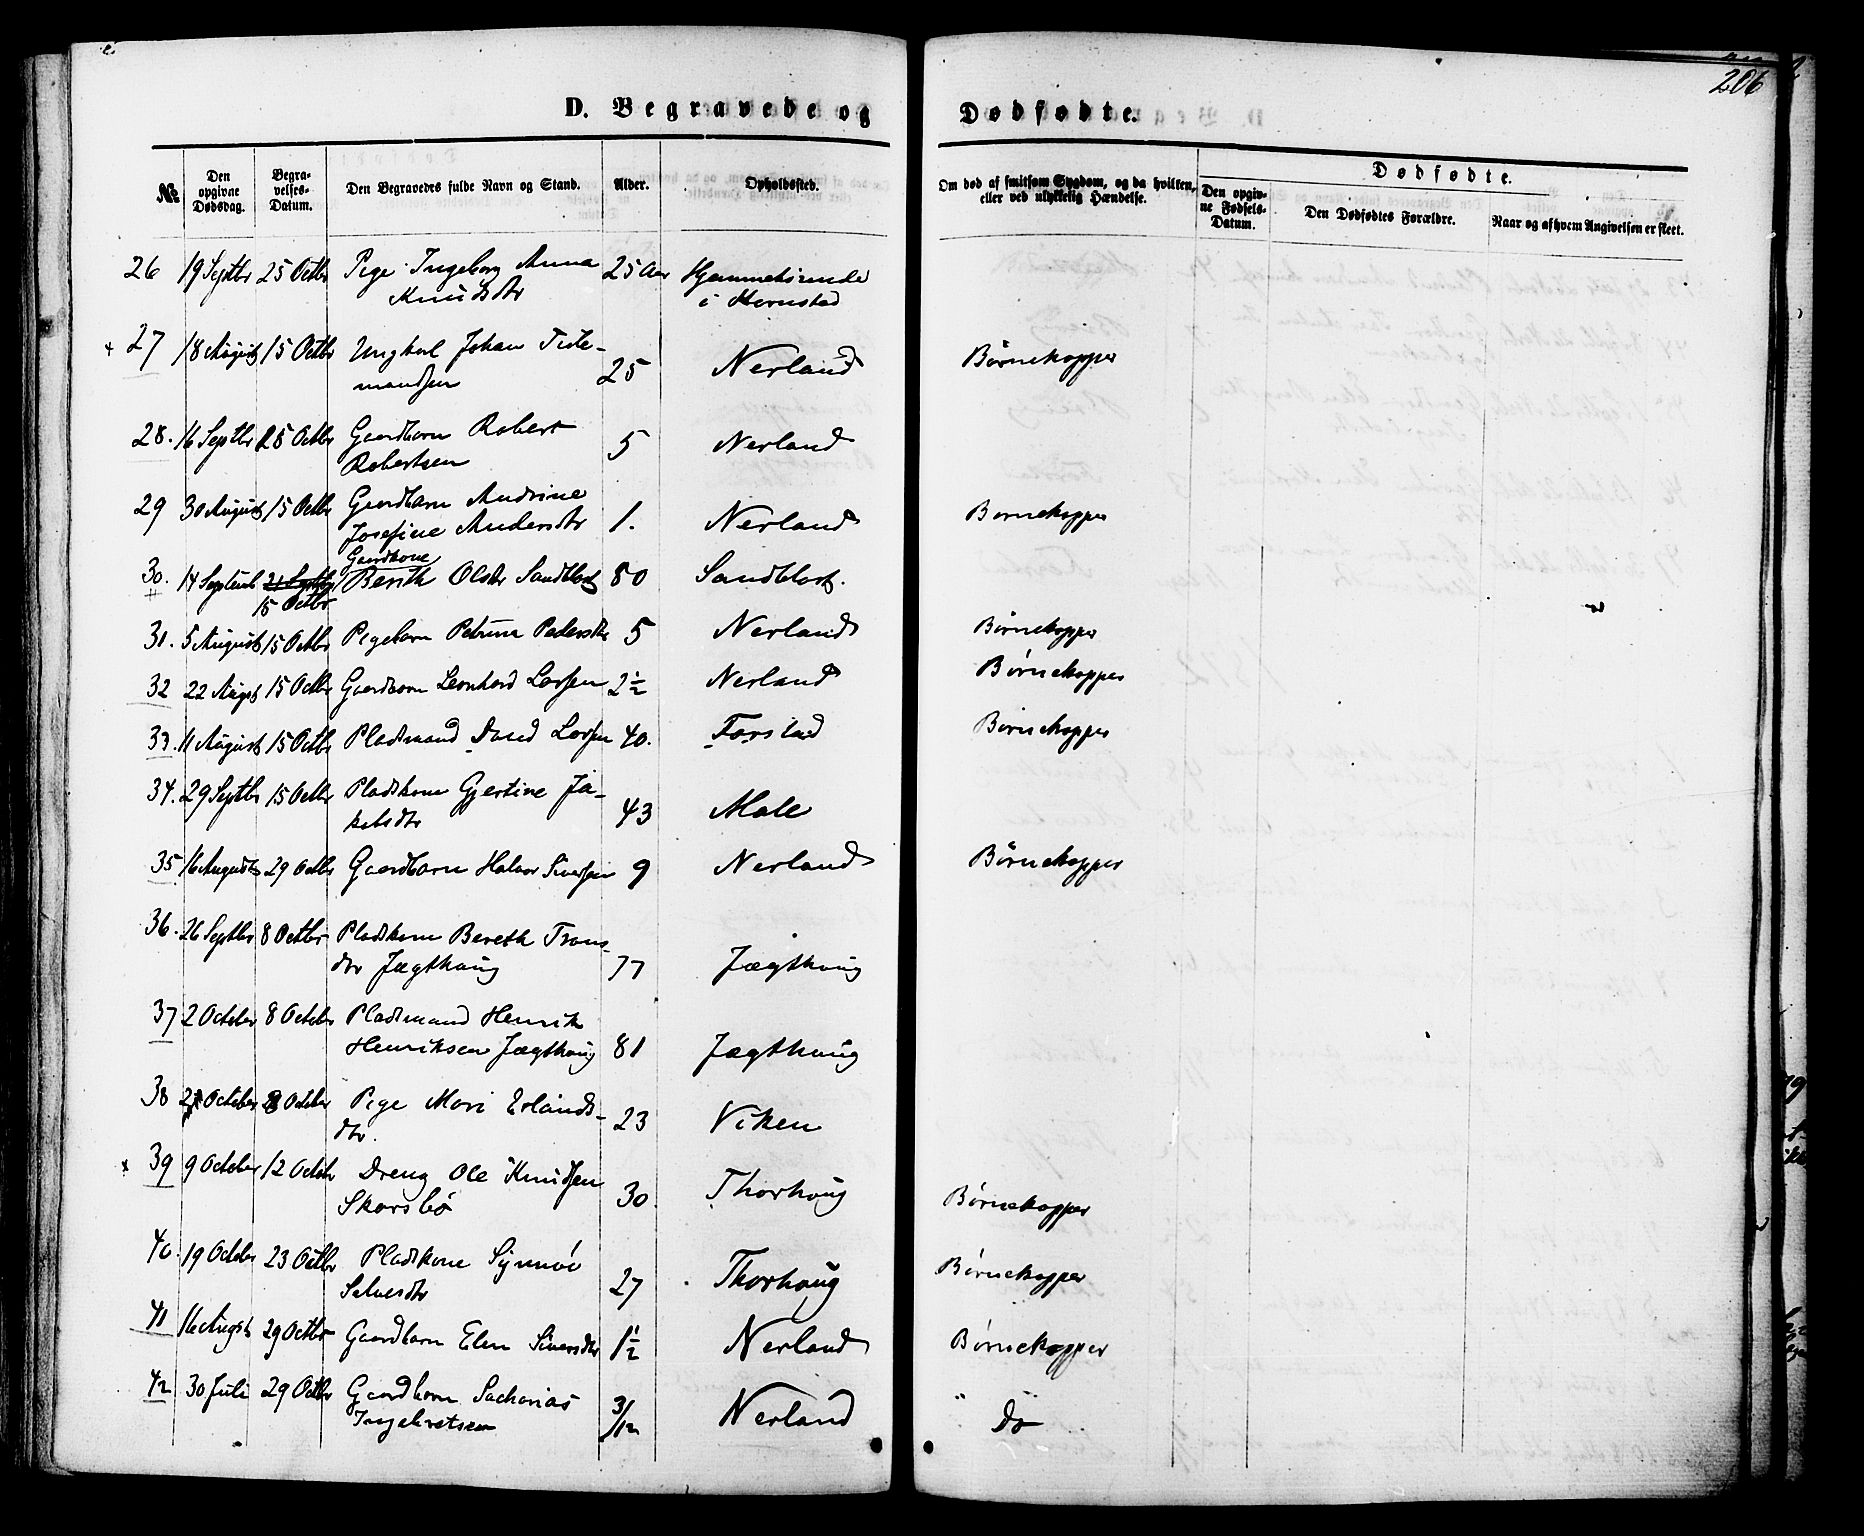 206
D. Begravede og Dødfødte.
№ Den opgivne Dødsdag. Begravelses-Datum. Den Begravedes fulde Navn og Stand. Alder. Opholdssted. Om død af smitsom Sygdom, og da hvilken, eller ved ulykkelig Hændelse. Dødfødte.
Den opgivne Fødsels-Datum. Den Dødfødtes Forældre. Naar og af hvem Angivelsen er skeet.
26 19 Septbr 25 Octbr Pige Ingeborg Anna 25 Aar Hjemmehørende
Knudsdtr i Hornstad
27 18 August 15 Octbr Ungkarl Johan Tide- 25 Nerland Børnekopper
mandsen
28. 16 Septbr 25 Octbr Gaardbarn Robert 5 Nerland
Robertsen
29 30 August 15 Octbr Gaardbarn Andrine 1. Nerland Børnekopper
Josefine Andersdtr
Gaardkone
30. 14 Septemb 21 Septbr Berith Olsdtr Sandblost 80 Sandblost.
15 Octbr
31. 5 August 15 Octbr Pigebarn Petrine Pedersdtr 5 Nerland Børnekopper
32 22 Augst 15 Octbr Gaardbarn Leonhard Larsen 2½ Nerland Børnekopper
33. 11 August 15 Octbr Pladsmand David Larsen 40. Farstad Børnekopper
34. 29 Septbr 15 Octbr Pladskone Gjertine Ja- 43 Male
kobsdtr
35 16 August 29 Octbr Gaardbarn Halvor Sivertsen 9 Nerland Børnekopper
36. 26 Septbr 8 Octbr Pladskone Bereth Trons- 77 Jægthaug
dtr Jægthaug
37 2 October 8 October Pladsmand Henrik 81 Jægthaug
Henriksen Jægthaug
38 2 October 8 October Pige Mari Erlands- 23 Viken
dtr.
39 9 October 12 Octobr Dreng Ole Knudsen 30 Thorhaug Børnekopper
Skarsbø
40. 19 October 23 Octbr Pladskone Synnøv 27 Thorhaug Børnekopper
Salvesdtr
41 16 Augst 29 Octbr Gaardbarn Elen Siversdtr 1½ Nerland Børnekopper
42 30 Juli 29 Octbr Gaardbarn Sacharias 3/12 Nerland " Do
Ingebretsen